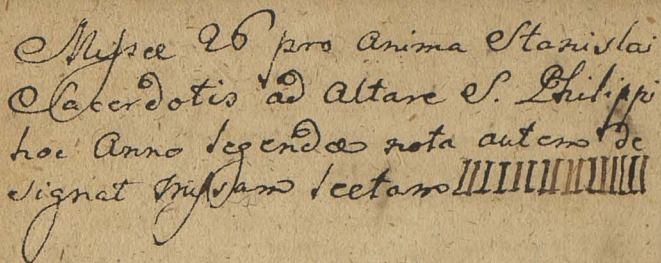 Missæ 26 pro Anima Stanislai
Sacerdotis ad Altare S. Philippi
hoc Anno legendæ nota autem de
signat missam lectam